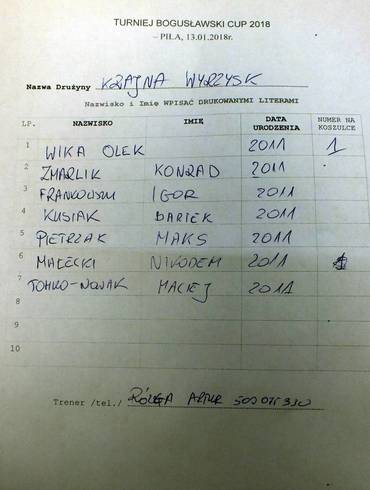 TURNIEJ BOGUSŁAWSKI CUP 2018
– PIŁA, 13.01.2018r.
Nazwa Drużyny KRAJNA WYRZYSK
Nazwisko i Imię WPISAĆ DRUKOWANYMI LITERAMI
LP. NAZWISKO IMIĘ DATA URODZENIA NUMER NA KOSZULCE
1 WIKA OLEK 2011 1
2 ŻMARLIK KONRAD 2011
3 FRANKOWSKI IGOR 2011
4 KUSIAK BARTEK 2011
5 PIETRZAK MAKS 2011
6 MAŁECKI NIKODEM 2011
7 TOMKO-NOWAK MACIEJ 2011
8
9
10
Trener /tel./ RÓZGA ARTUR 509 075 330